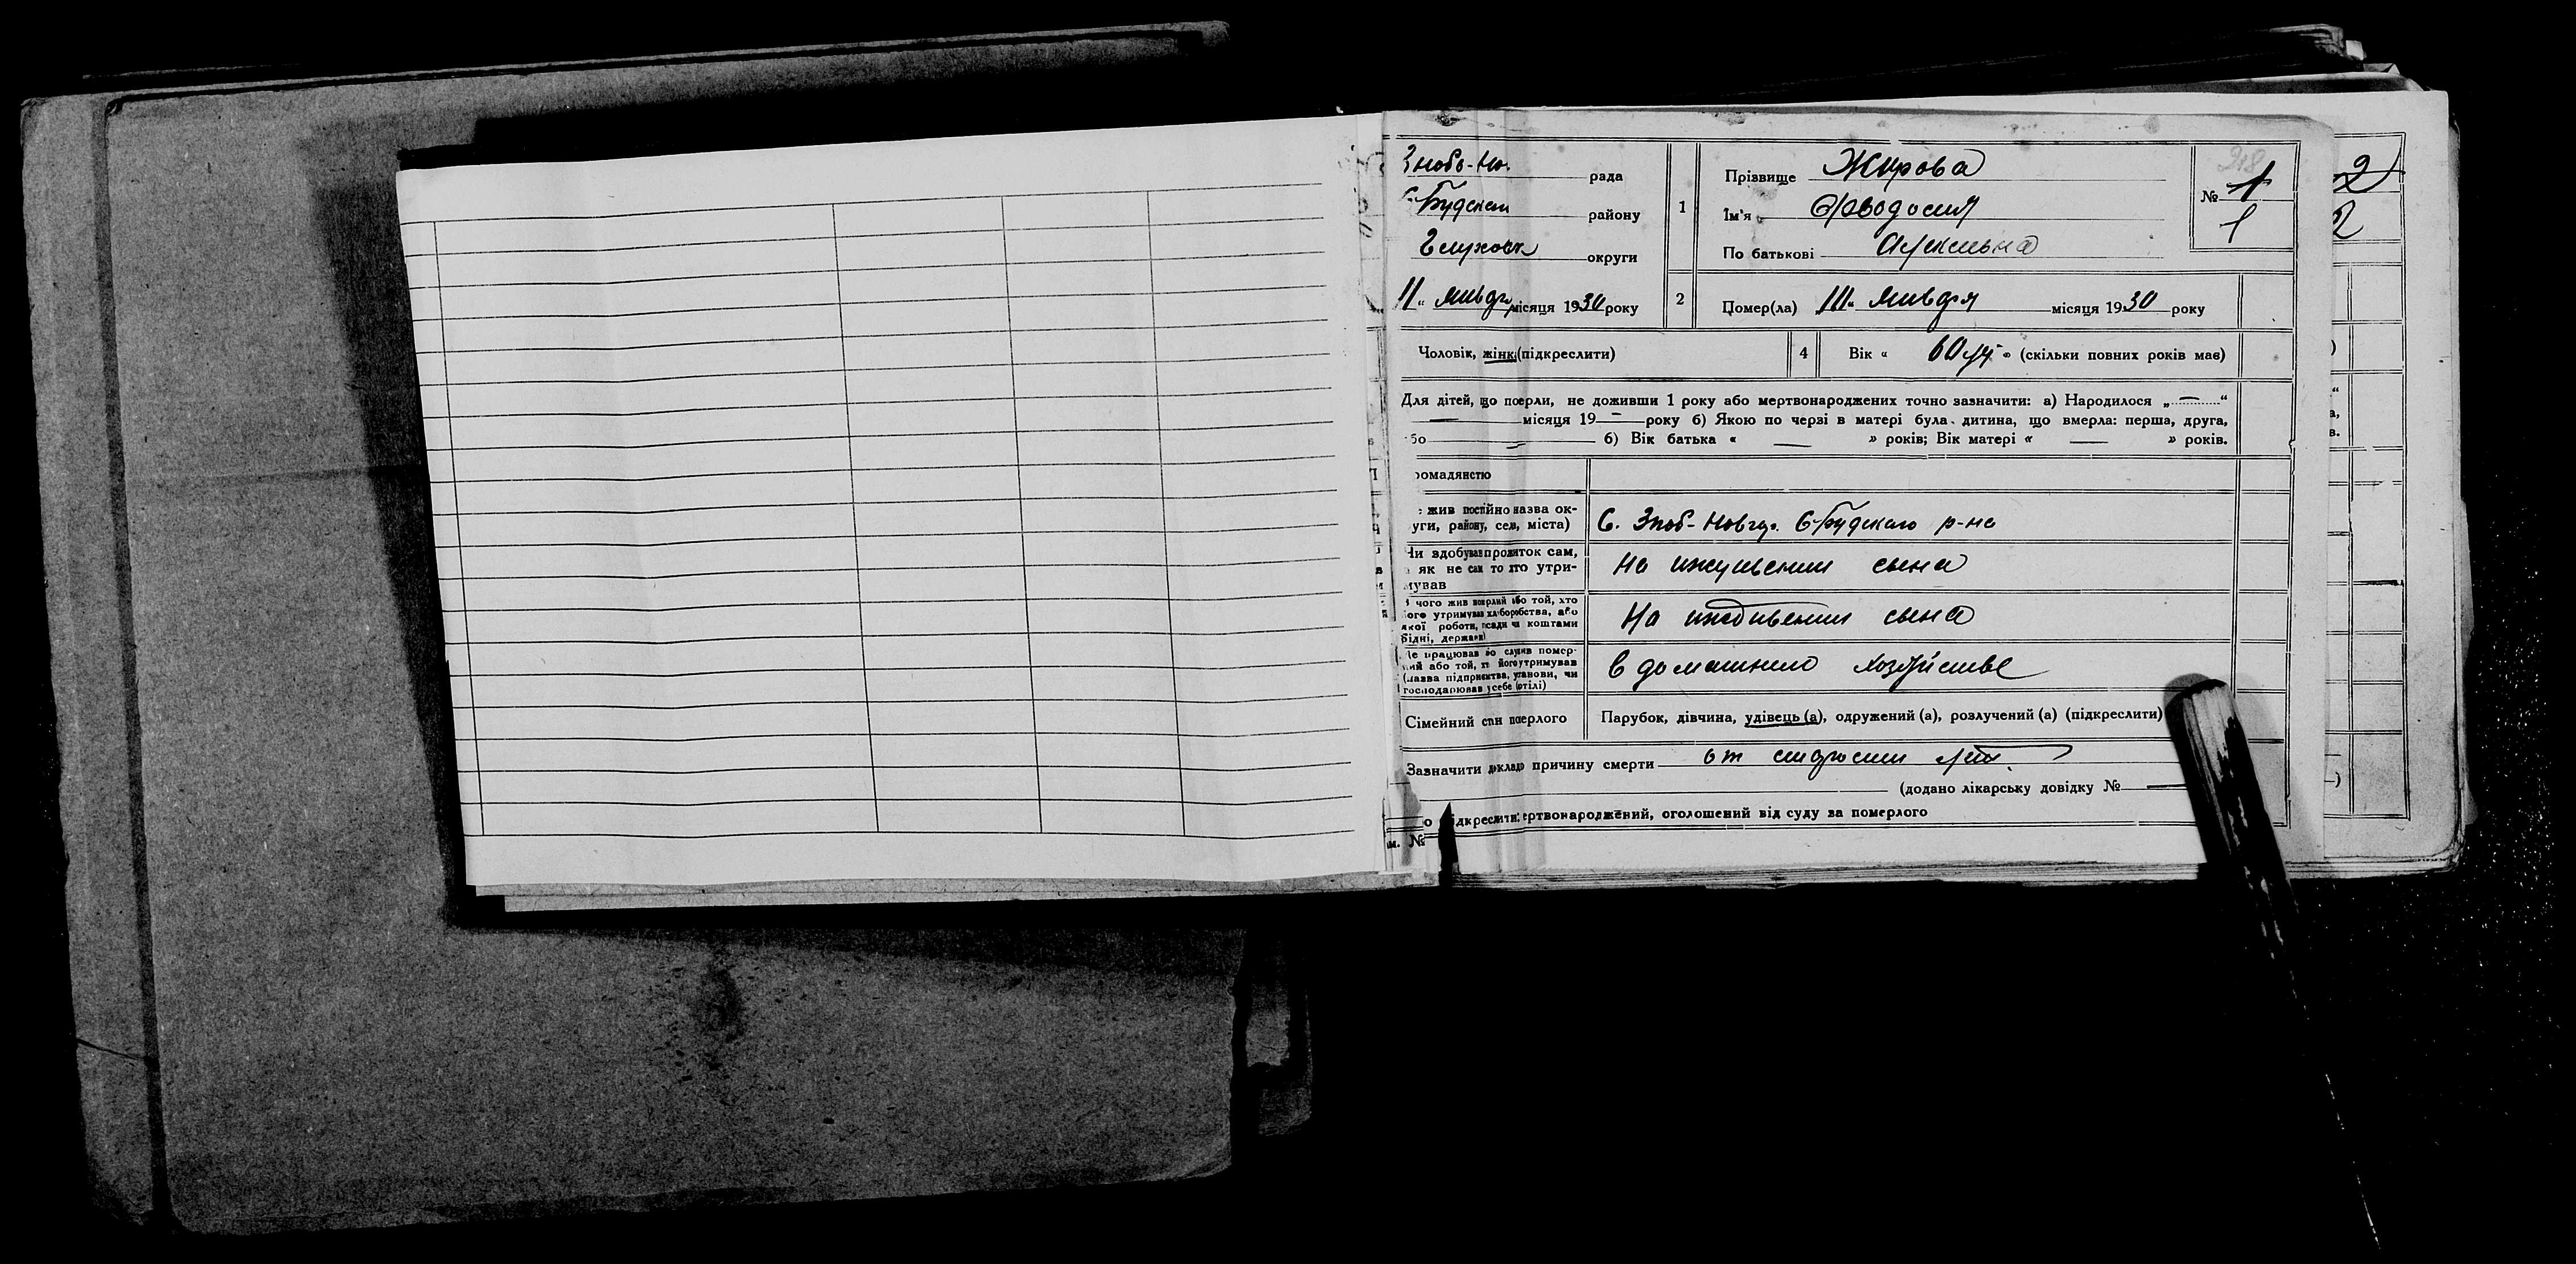 Знобь-Но. рада
С-Будскаи району
Глуховск округи
11 „ января місяця 1930 року
1
Прізвище Жирова
Ім'я Феодосия
По батькові
№ 1
1
2
2
2
Помер(ла) „ 11 „ января місяця 1930 року
Чоловік, жінк (підкреслити)
4
Вік « 60 » (скільки повних років має)
Для дітей, що померли, не доживши 1 року або мертвонароджених точно зазначити: а) Народилося „ — “
— місяця 19 — року б) Якою по черзі в матері була дитина, що вмерла: перша, друга,
бо — б) Вік батька « — » років; Вік матері « — » років.
ромадянстю
жив постійно назва ок-
уги, району, села, міста)
С. Зноб-Новгор. С-Будскаго р-на
Чи здобував прожиток сам,
як не сам то хто утри-
мував
На иждивении сына
чого жив померлий або той, хто
ого утримував хліборобства, або
якої роботи, посади чи коштами
рідні, держави)
На иждивении сына
Де працював бо служив помер-
ний або той, хт його утримував
(назва підприємства, установи, чи
господарював у себе (отілі)
в домашнем хозяйстве
Сімейний стан померлого
Парубок, дівчина, удівець (а), одружений (а), розлучений (а) (підкреслити)
Зазначити докладо причину смерти от старости лет.
(додано лікарську довідку № —
о підкреслити: ертвонароджений, оголошений від суду за померлого
м. №